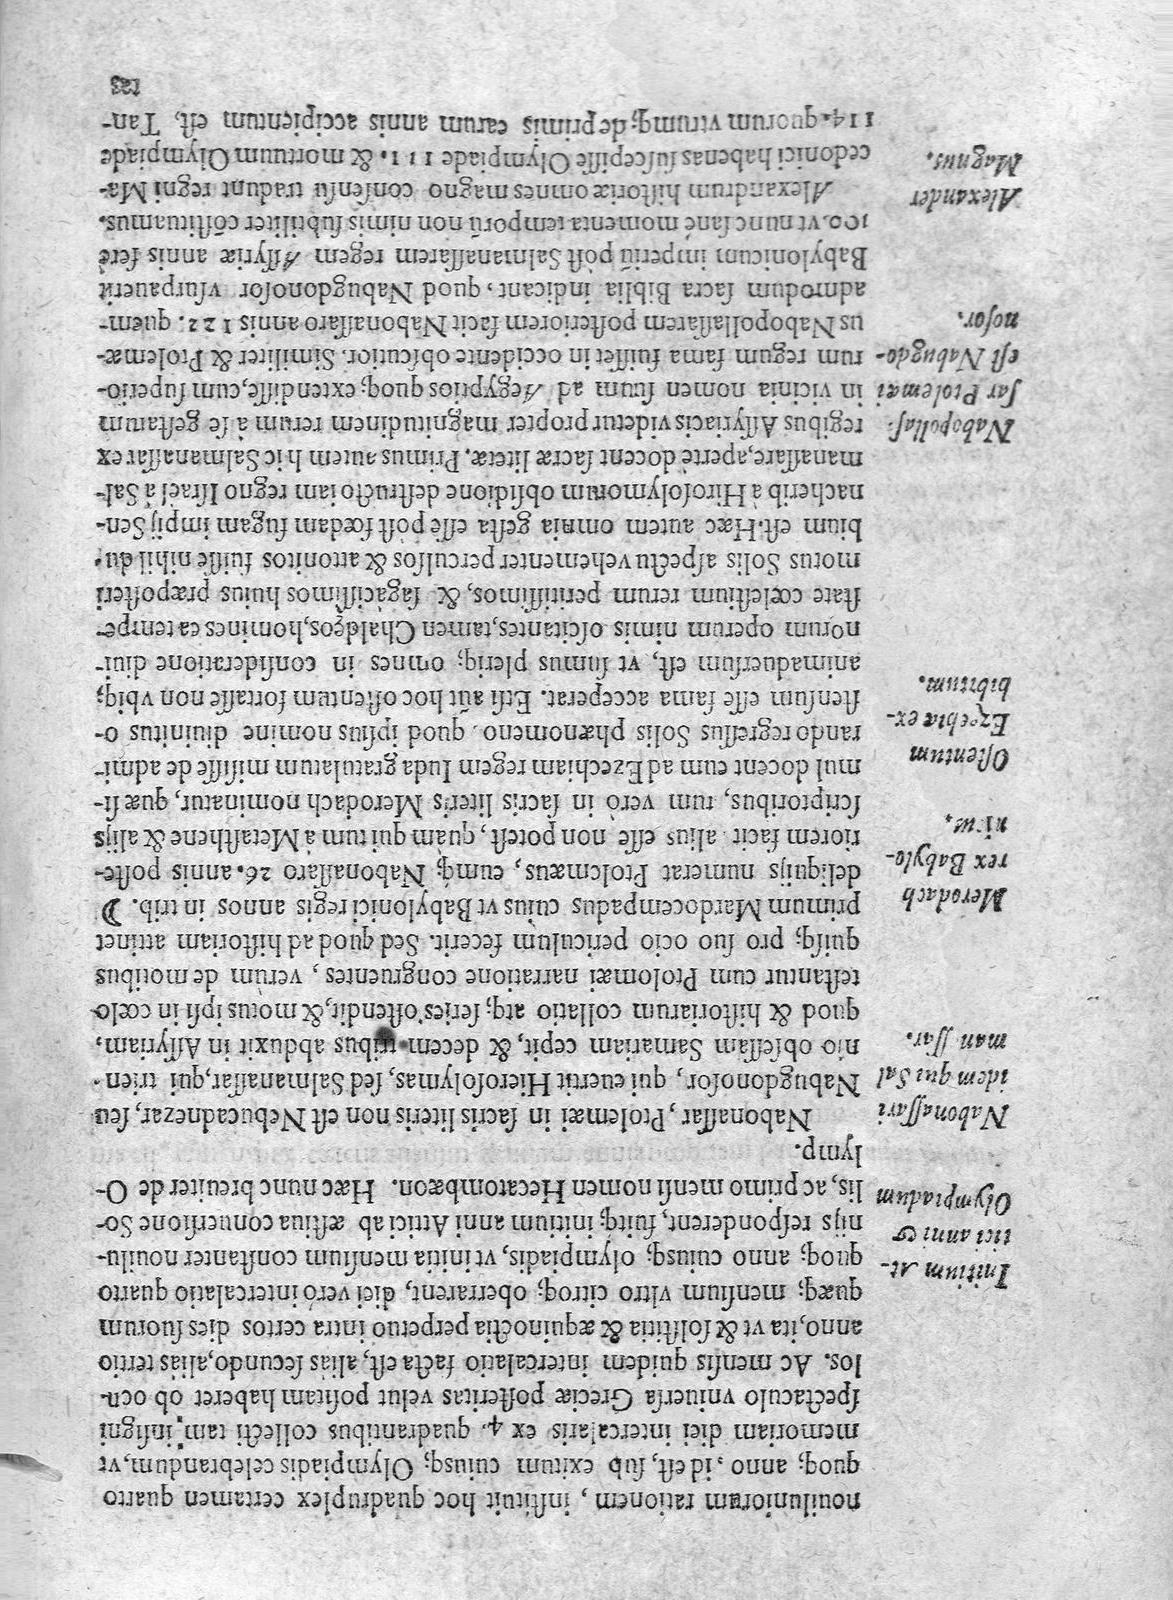 nouiluniorum rationem, inſtituit hoc quadruplex certamen quarto
quoq; anno, id eſt, ſub exitum cuiusq; Olympiadis celebrandum, vt
memoriam diei intercalaris ex 4. quadrantibus collecti tam inſigni
ſpectaculo vniuerſa Greciæ poſteritas velut poſitam haberet ob ocu-
los. Ac menſis quidem intercalatio facta eſt, alias ſecundo, alias tertio
anno, ita vt & ſolſtitia & æquinoctia perpetuo intra certos dies ſuorum
quæq; menſium vltro citroq; oberrarent, diei verò intercalatio quarto
quoq; anno cuiusq; olympiadis, vt initia menſium conſtanter nouilu-
nijs reſponderent, fuitq; initium anni Attici ab æſtiua conuerſione So-
lis, ac primo menſi nomen Hecatombæon. Hæc nunc breuiter de O-
lymp.
Initium At-
tici anni &
Olympiadum
Nabonaſſar, Ptolemæi in ſacris literis non eſt Nebucadnezar, ſeu
Nabugdonoſor, qui euertit Hieroſolymas, ſed Salmanaſſar, qui trien-
nio obſeſſam Samariam cepit, & decem tribus abduxit in Aſſyriam,
quod & hiſtoriarum collatio atq; ſeries oſtendit, & motus ipſi in cœlo
teſtantur cum Ptolomæi narratione congruentes, verùm de motibus
quiſq; pro ſuo ocio periculum fecerit. Sed quod ad hiſtoriam attinet
primum Mardocempadus cuius vt Babylonici regis annos in trib. ☽
deliquijs numerat Ptolemæus, eumq; Nabonaſſaro 26. annis poſte-
riorem facit alius eſſe non poteſt, quàm qui tum à Metaſthene & alijs
ſcriptoribus, tum verò in ſacris literis Merodach nominatur, quæ ſi-
mul docent eum ad Ezechiam regem Iuda gratulatum miſiſſe de admi-
rando regreſſus Solis phænomeno, quod ipſius nomine diuinitus o-
ſtenſum eſſe fama acceperat. Etſi aũt hoc oſtentum fortaſſe non vbiq;
animaduerſum eſt, vt ſumus pleriq; omnes in conſideratione diui-
norum operum nimis oſcitantes, tamen Chaldęos, homines ea tempe-
ſtate cœleſtium rerum peritiſſimos, & ſagaciſſimos huius præpoſteri
motus Solis aſpectu vehementer perculſos & attonitos fuiſſe nihil du-
bium eſt. Hæc autem omnia geſta eſſe poſt fœdam fugam impij Sen-
nacherib à Hiroſolymorum obſidione deſtructo iam regno Iſrael à Sal-
manaſſare, apertè docent ſacræ literæ. Primus autem hic Salmanaſſar ex
regibus Aſſyriacis videtur propter magnitudinem rerum à ſe geſtarum
in vicinia nomen ſuum ad Aegyptios quoq; extendiſſe, cum ſuperio-
rum regum fama fuiſſet in occidente obſcurior. Similiter & Ptolemæ-
us Nabopollaſſarem poſteriorem facit Nabonaſſaro annis 122. quem-
admodum ſacra Biblia indicant, quod Nabugdonoſor vſurpauerit
Babylonicum imperiũ poſt Salmanaſſarem regem Aſſyriæ annis ferè
100. vt nunc ſanè momenta temporũ non nimis ſubtiliter cõſtituamus.
Nabonaſſari
idem qui Sal
man ſſar.
Merodach
rex Babylo-
nicus.
Oſtentum
Ezechiæ ex-
hibitum.
Nabopollaſ-
ſar Ptolemæi
eſt Nabugdo-
noſor.
Alexandrum hiſtoriæ omnes magno conſenſu tradunt regni Ma-
cedonici habenas ſuſcepiſſe Olympiade 111. & mortuum Olympiade
114. quorum vtrumq; de primis earum annis accipientum eſt. Tan-
Alexander
Magnus.
123